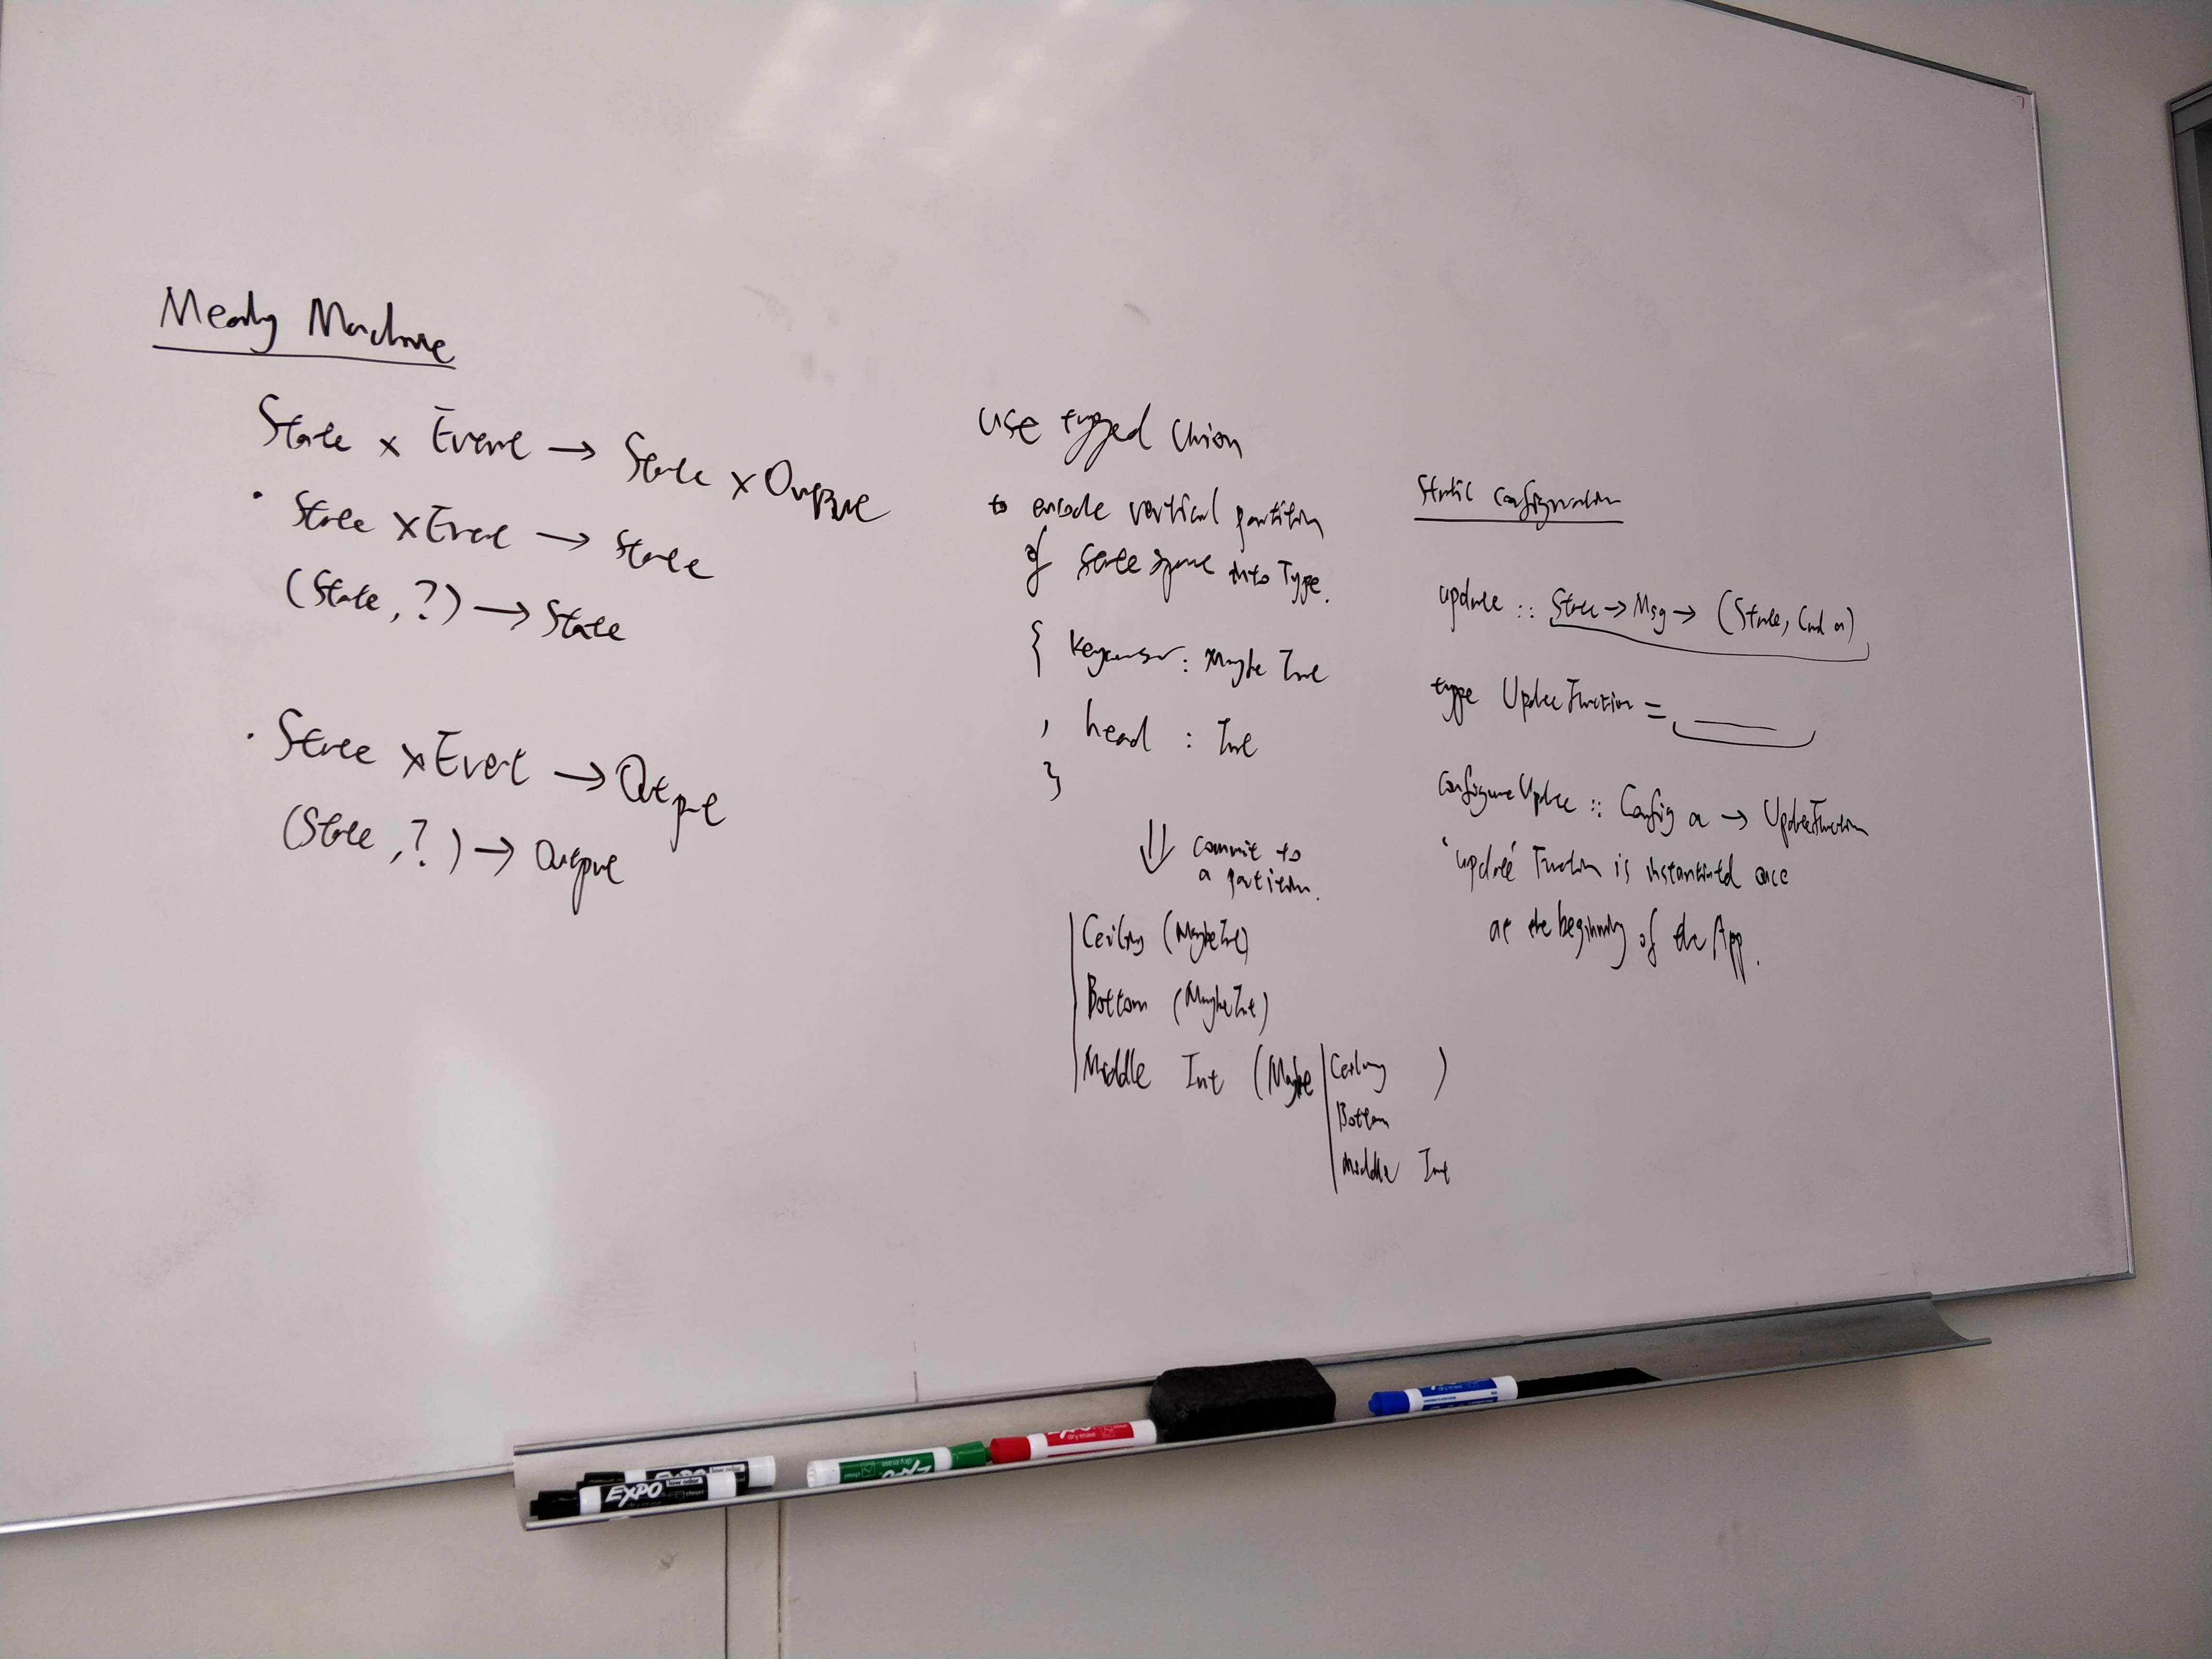 Mealy Machine
State × Event → State × Output
· State × Event → State
(State, ?) → State
· State × Event → Output
(State, ?) → Output
use tagged Union
to encode vertical partition
of state space into Type.
{ keycursor : Maybe Int
, head : Int
}
⇓ commit to
a partition.
| Ceiling (Maybe Int)
| Bottom (Maybe Int)
| Middle Int (Maybe | Ceiling )
| Bottom
| Middle Int
Static Configuration
update :: State → Msg → (State, Cmd a)
type UpdateFunction = ___
configureUpdate :: Config a → UpdateFunction
"update" Function is instantiated once
at the beginning of the App.
EXPO
low odor
EXPO
low odor
dry erase
chisel
EXPO
dry erase
dry erase